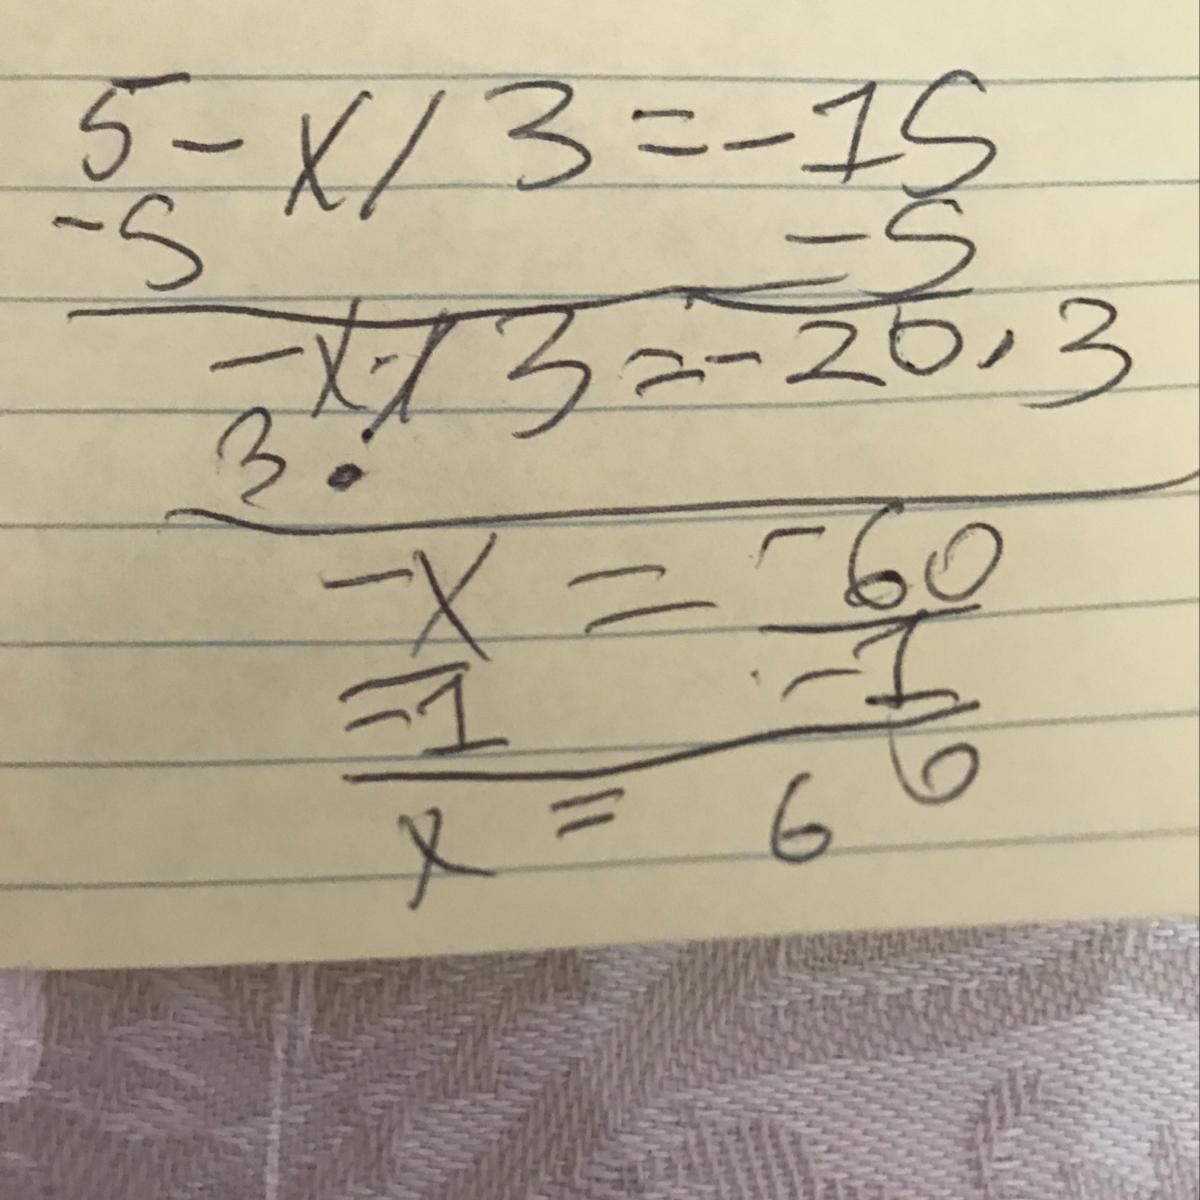 5 - x / 3 = -15
-5 -5
-x / 3 = -20 · 3
3 ·
-x = -60
-1 -1
x = 6 6